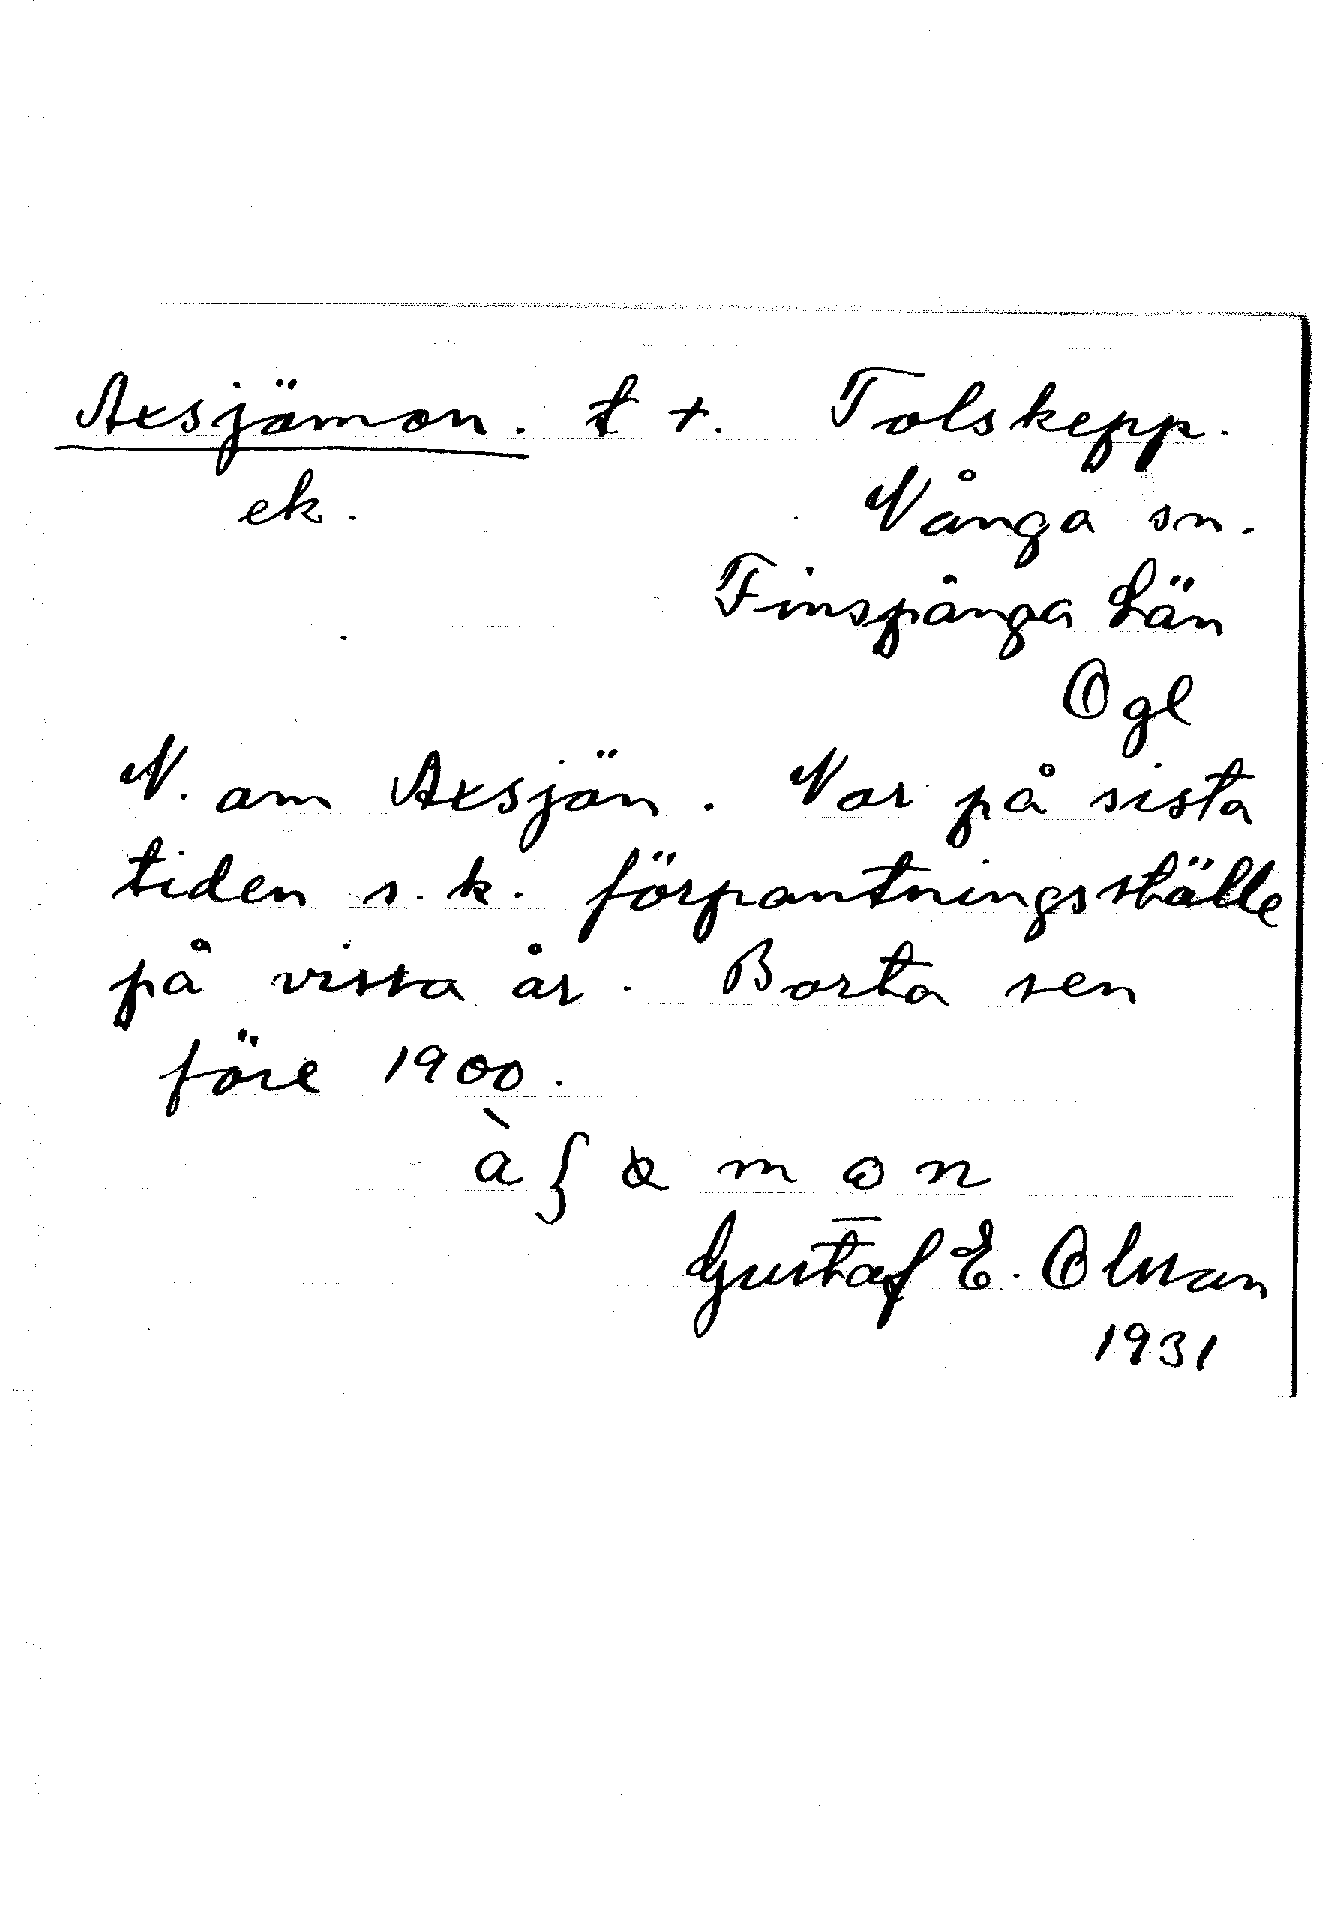 Axsjömon. t +. Tolskepp.
ek. Vånga sn.
Finspånga Län
Ögl
N. om Axsjön. Var på sista
tiden s.k. förpantningsställe
på vissa år. Borta sen
före 1900.
Gustaf E. Olsson
1931